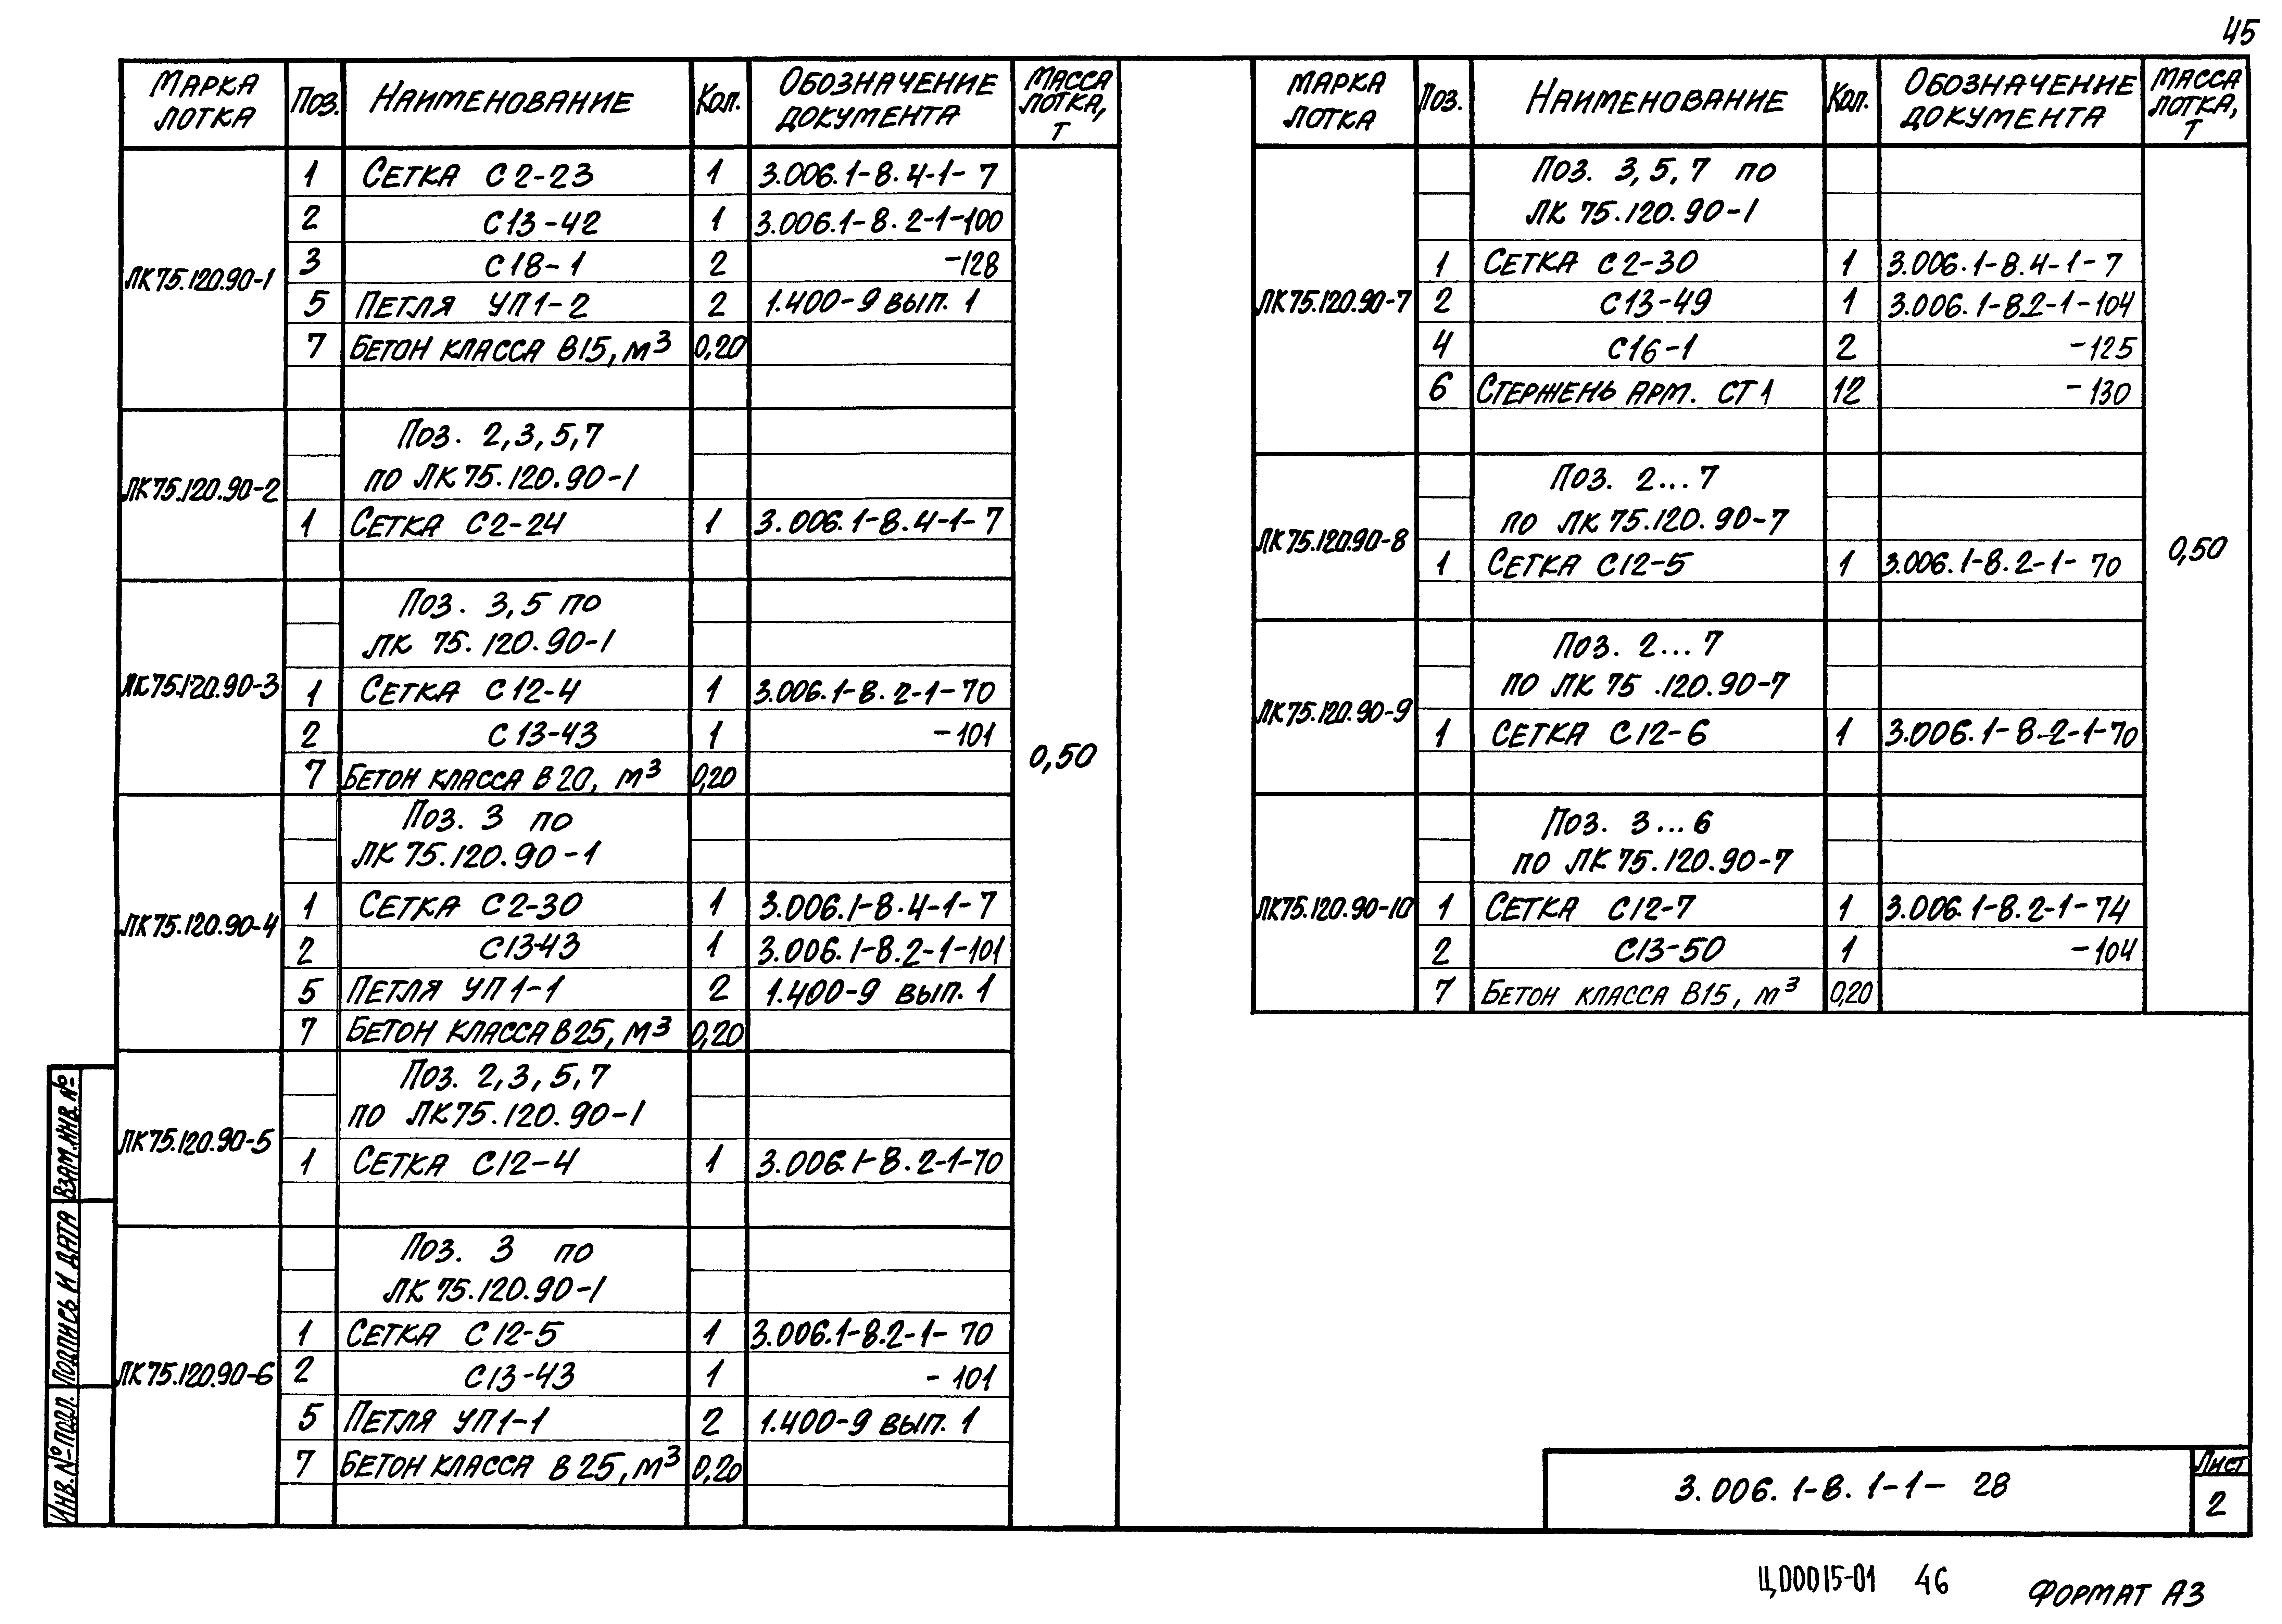 45
МАРКА ЛОТКА Поз. НАИМЕНОВАНИЕ Кол. ОБОЗНАЧЕНИЕ ДОКУМЕНТА МАССА ЛОТКА, Т
ЛК75.120.90-1
1 СЕТКА С2-23 1 3.006.1-8.4-1-7
2 С13-42 1 3.006.1-8.2-1-100
3 С18-1 2 -128
5 ПЕТЛЯ УП1-2 2 1.400-9 вып. 1
7 БЕТОН КЛАССА В15, м³ 0,20
ЛК75.120.90-2
Поз. 2,3,5,7
по ЛК75.120.90-1
1 СЕТКА С2-24 1 3.006.1-8.4-1-7
ЛК75.120.90-3
Поз. 3,5 по
ЛК 75.120.90-1
1 СЕТКА С12-4 1 3.006.1-8.2-1-70
2 С13-43 1 -101
7 БЕТОН КЛАССА В20, м³ 0,20
0,50
ЛК75.120.90-4
Поз. 3 по
ЛК75.120.90-1
1 СЕТКА С2-30 1 3.006.1-8.4-1-7
2 С13-43 1 3.006.1-8.2-1-101
5 ПЕТЛЯ УП1-1 2 1.400-9 вып. 1
7 БЕТОН КЛАССА В25, м³ 0,20
ЛК75.120.90-5
Поз. 2,3,5,7
по ЛК75.120.90-1
1 СЕТКА С12-4 1 3.006.1-8.2-1-70
ЛК75.120.90-6
Поз. 3 по
ЛК75.120.90-1
1 СЕТКА С12-5 1 3.006.1-8.2-1-70
2 С13-43 1 -101
5 ПЕТЛЯ УП1-1 2 1.400-9 вып. 1
7 БЕТОН КЛАССА В25, м³ 0,20
МАРКА ЛОТКА Поз. НАИМЕНОВАНИЕ Кол. ОБОЗНАЧЕНИЕ ДОКУМЕНТА МАССА ЛОТКА, Т
ЛК75.120.90-7
Поз. 3,5,7 по
ЛК 75.120.90-1
1 СЕТКА С2-30 1 3.006.1-8.4-1-7
2 С13-49 1 3.006.1-8.2-1-104
4 С16-1 2 -125
6 СТЕРЖЕНЬ АРМ. СТ1 12 -130
ЛК75.120.90-8
Поз. 2...7
по ЛК75.120.90-7
1 СЕТКА С12-5 1 3.006.1-8.2-1-70
0,50
ЛК75.120.90-9
Поз. 2...7
по ЛК75.120.90-7
1 СЕТКА С12-6 1 3.006.1-8-2-1-70
ЛК75.120.90-10
Поз. 3...6
по ЛК75.120.90-7
1 СЕТКА С12-7 1 3.006.1-8.2-1-74
2 С13-50 1 -104
7 БЕТОН КЛАССА В15, м³ 0,20
Взам.инв.№
Подпись и дата
Инв.№подл.
3.006.1-8.1-1-28
Лист
2
Ц00015-01 46
ФОРМАТ А3